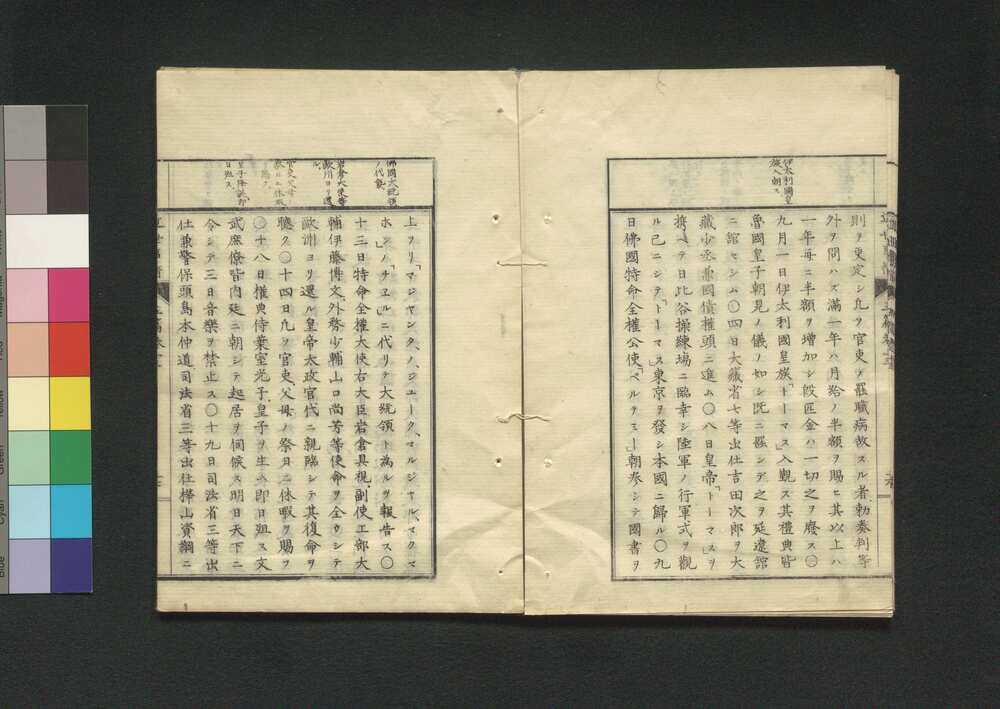 伊太利國皇
族入朝ス
則ヲ更定シ凡ヲ官吏ノ罷職病故スル者勅奏判等
外ヲ問ハズ滿一年ハ月給ノ半額ヲ賜ヒ其以上ハ
一年每ニ半額ヲ增加シ毀匹金ハ一切之ヲ廢ス〇
九月一日伊太利國皇族「トーマス」入觀ス其禮典皆
魯國皇子朝見ノ儀ノ如シ既ニ罷シデ之ヲ延遼館
ニ館セシム〇四日大藏省七等出仕吉田次郎ヲ大
藏少丞兼國債權頭ニ進ム〇八日皇帝「トーマス」ヲ
携ヘテ日比谷操練場ニ臨幸シ陸軍ノ行軍式ヲ觀
ル已ニシテ「トーマス」東京ヲ發シ本國ニ歸ル〇九
日佛國特命全權公使「ベルテミー」朝參シテ國書ヲ
佛國大統領
ノ代替
岩倉大使等
歐洲ヨリ還
ル
皇子降誕即
日殂ス
上ヲリ「マジヤンタ、ノ、ジユーク、マルジヤル、マクマ
ホン」「チエル」ニ代リテ大統領ト為ルヲ報告ス〇
十三日特命全權大使右大臣岩倉具視副使工部大
輔伊藤博文外務少輔山口尚芳等使命ヲ全ウシテ
歐洲ヨリ還ル皇帝太政官代ニ親臨シテ其復命ヲ
聽ク〇十四日凡ソ官吏父母ノ祭日ニ休暇ヲ賜フ
〇十八日權典侍葉室光子皇子ヲ生ム即日殂ス文
武庶僚皆內廷ニ朝シテ起居ヲ伺候ス明日天下ニ
令シテ三日音樂ヲ禁止ス〇十九日司法省三等出
仕兼警保頭島本仲道司法省三等出仕樺山資綱ニ